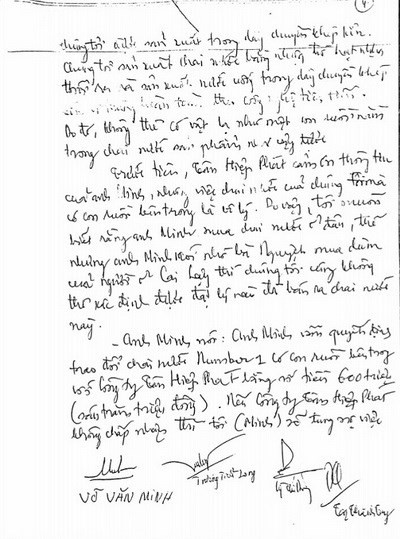 4
chúng tôi nước sản xuất trong dây chuyền khép kín.
Chúng tôi sản xuất chai nước bằng nhựa từ hạt nhựa
thổi ra và sản xuất nước uống trong dây chuyền khép
Do đó, không thể có vật lạ như một con ruồi nằm
trong chai nước sản phẩm như vậy được
Trước tiên, Tân Hiệp Phát cảm ơn thông tin
của anh Minh, nhưng việc chai nước của chúng tôi mà
có con ruồi bên trong là vô lý. Do vậy, tôi muốn
biết rằng anh Minh mua chai nước ở đâu, thế
nhưng anh Minh nói nhờ bà Nguyệt mua dùm
của người ở Cai Lậy thì chúng tôi cũng không
thể xác định được đại lý nào đã bán ra chai nước
này.
- Anh Minh nói: Anh Minh vẫn quyết định
trao đổi chai nước Number 1 có con ruồi bên trong
với Công ty Tân Hiệp Phát bằng số tiền 600 triệu
(sáu trăm triệu đồng). Nếu Công ty Tân Hiệp Phát
không chấp nhận thì tôi (Minh) sẽ tung sự việc
VÕ VĂN MINH